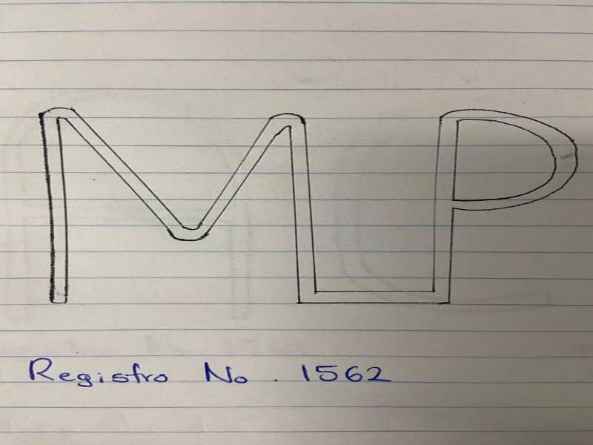 MP
Registro No. 1562